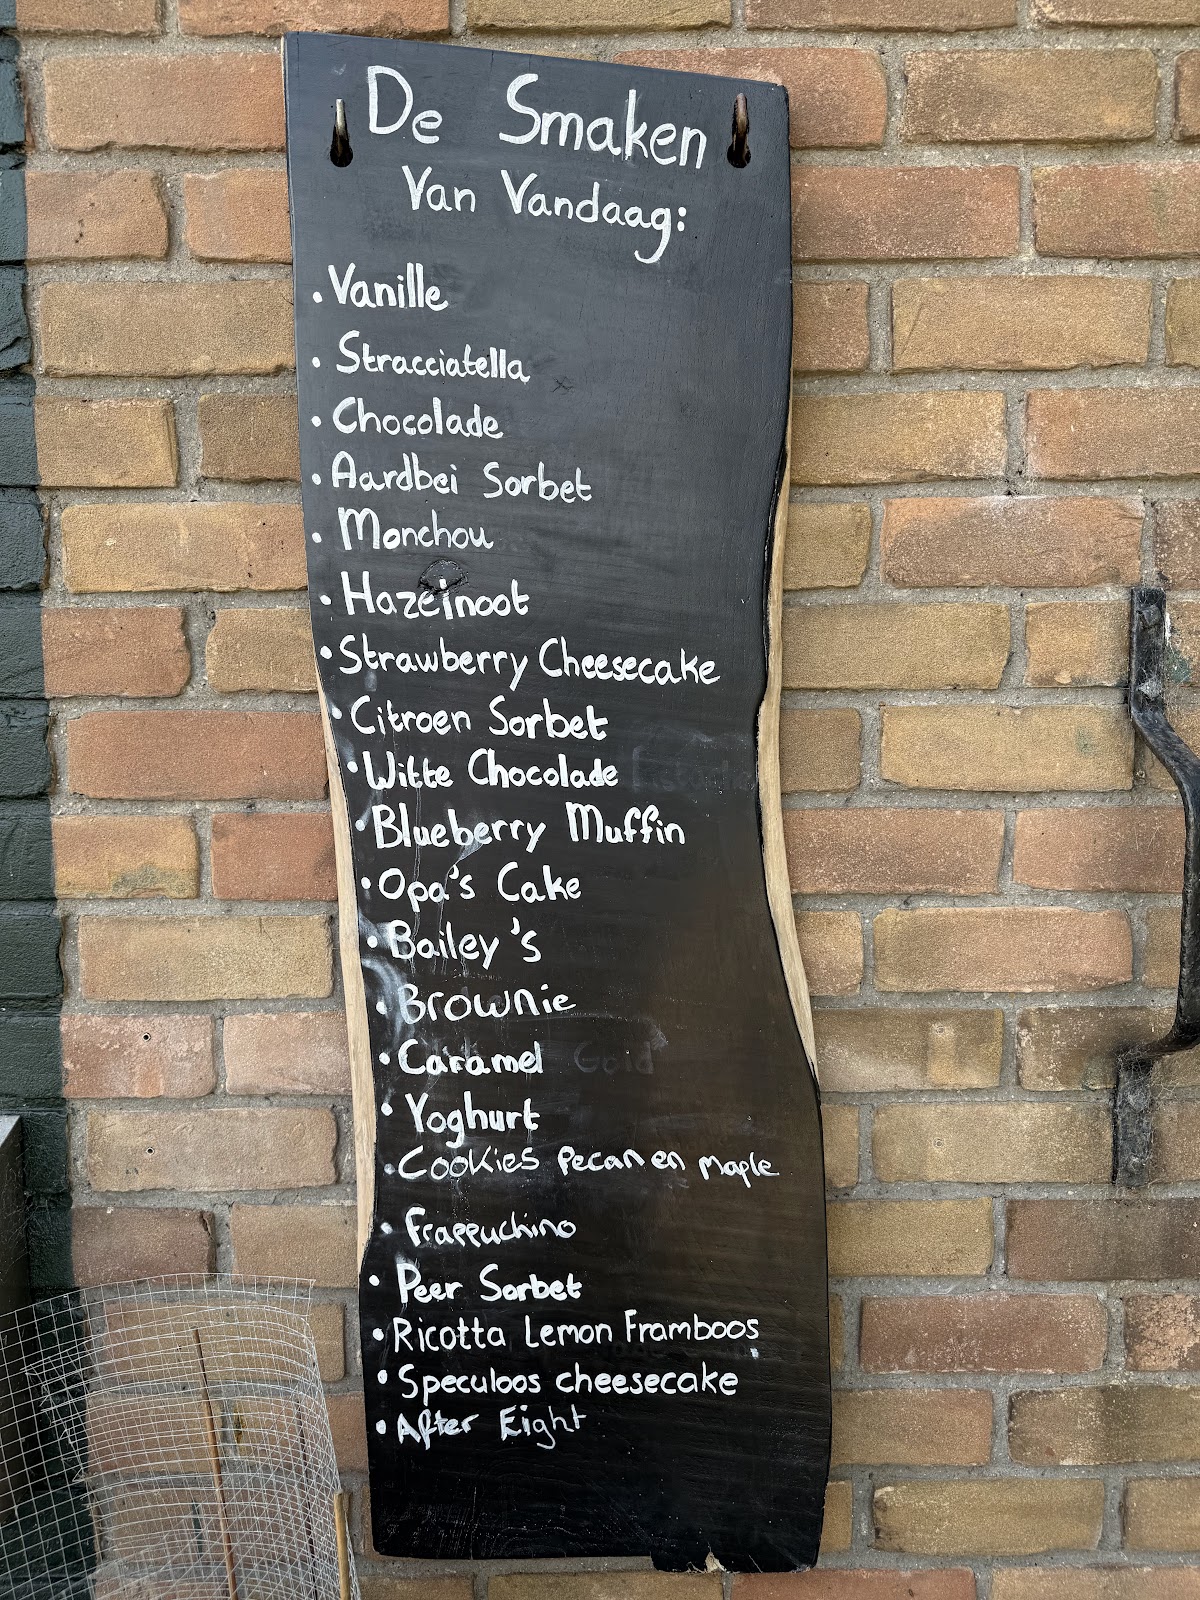 De Smaken
Van Vandaag:
• Vanille
• Stracciatella
• Chocolade
• Aardbei Sorbet
• Monchou
• Hazelnoot
• Strawberry Cheesecake
• Citroen Sorbet
• Witte Chocolade
• Blueberry Muffin
• Opa's Cake
• Bailey's
• Brownie
• Caramel Gold
• Yoghurt
• Cookies Pecan en Maple
• Frappuchino
• Peer Sorbet
• Ricotta Lemon Framboos
• Speculoos cheesecake
• After Eight